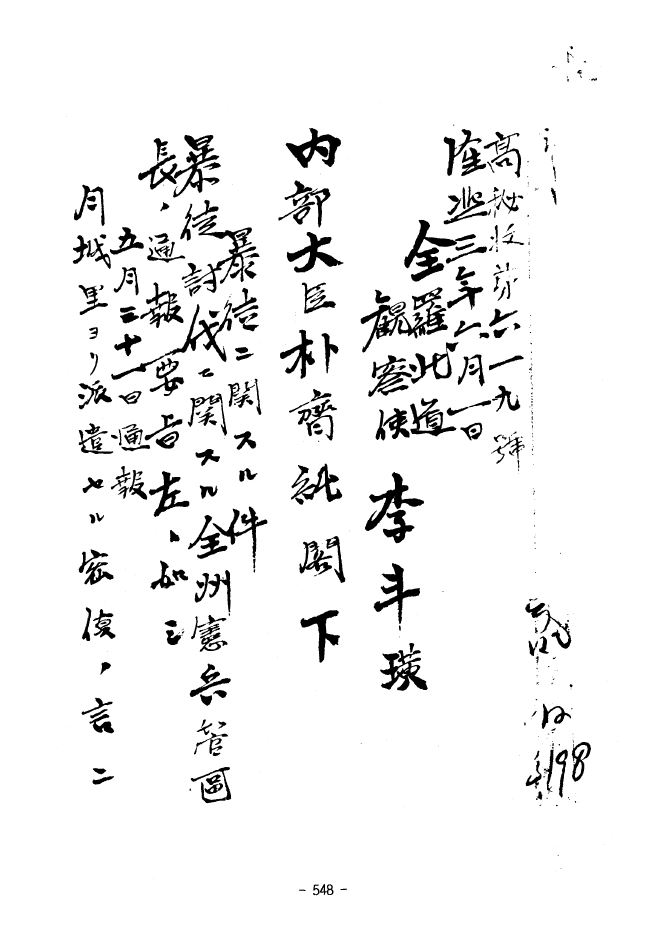 高秘收第六一九號
隆熙三年六月一日
全羅北道
觀察使 李斗璜
內部大臣朴齊純閣下
暴徒ニ関スル件
暴徒討伐ニ関スル全州憲兵管區
長ノ通報要旨左ノ如シ
五月三十一日通報
月城里ヨリ派遣セル密偵ノ言ニ
198
- 548 -